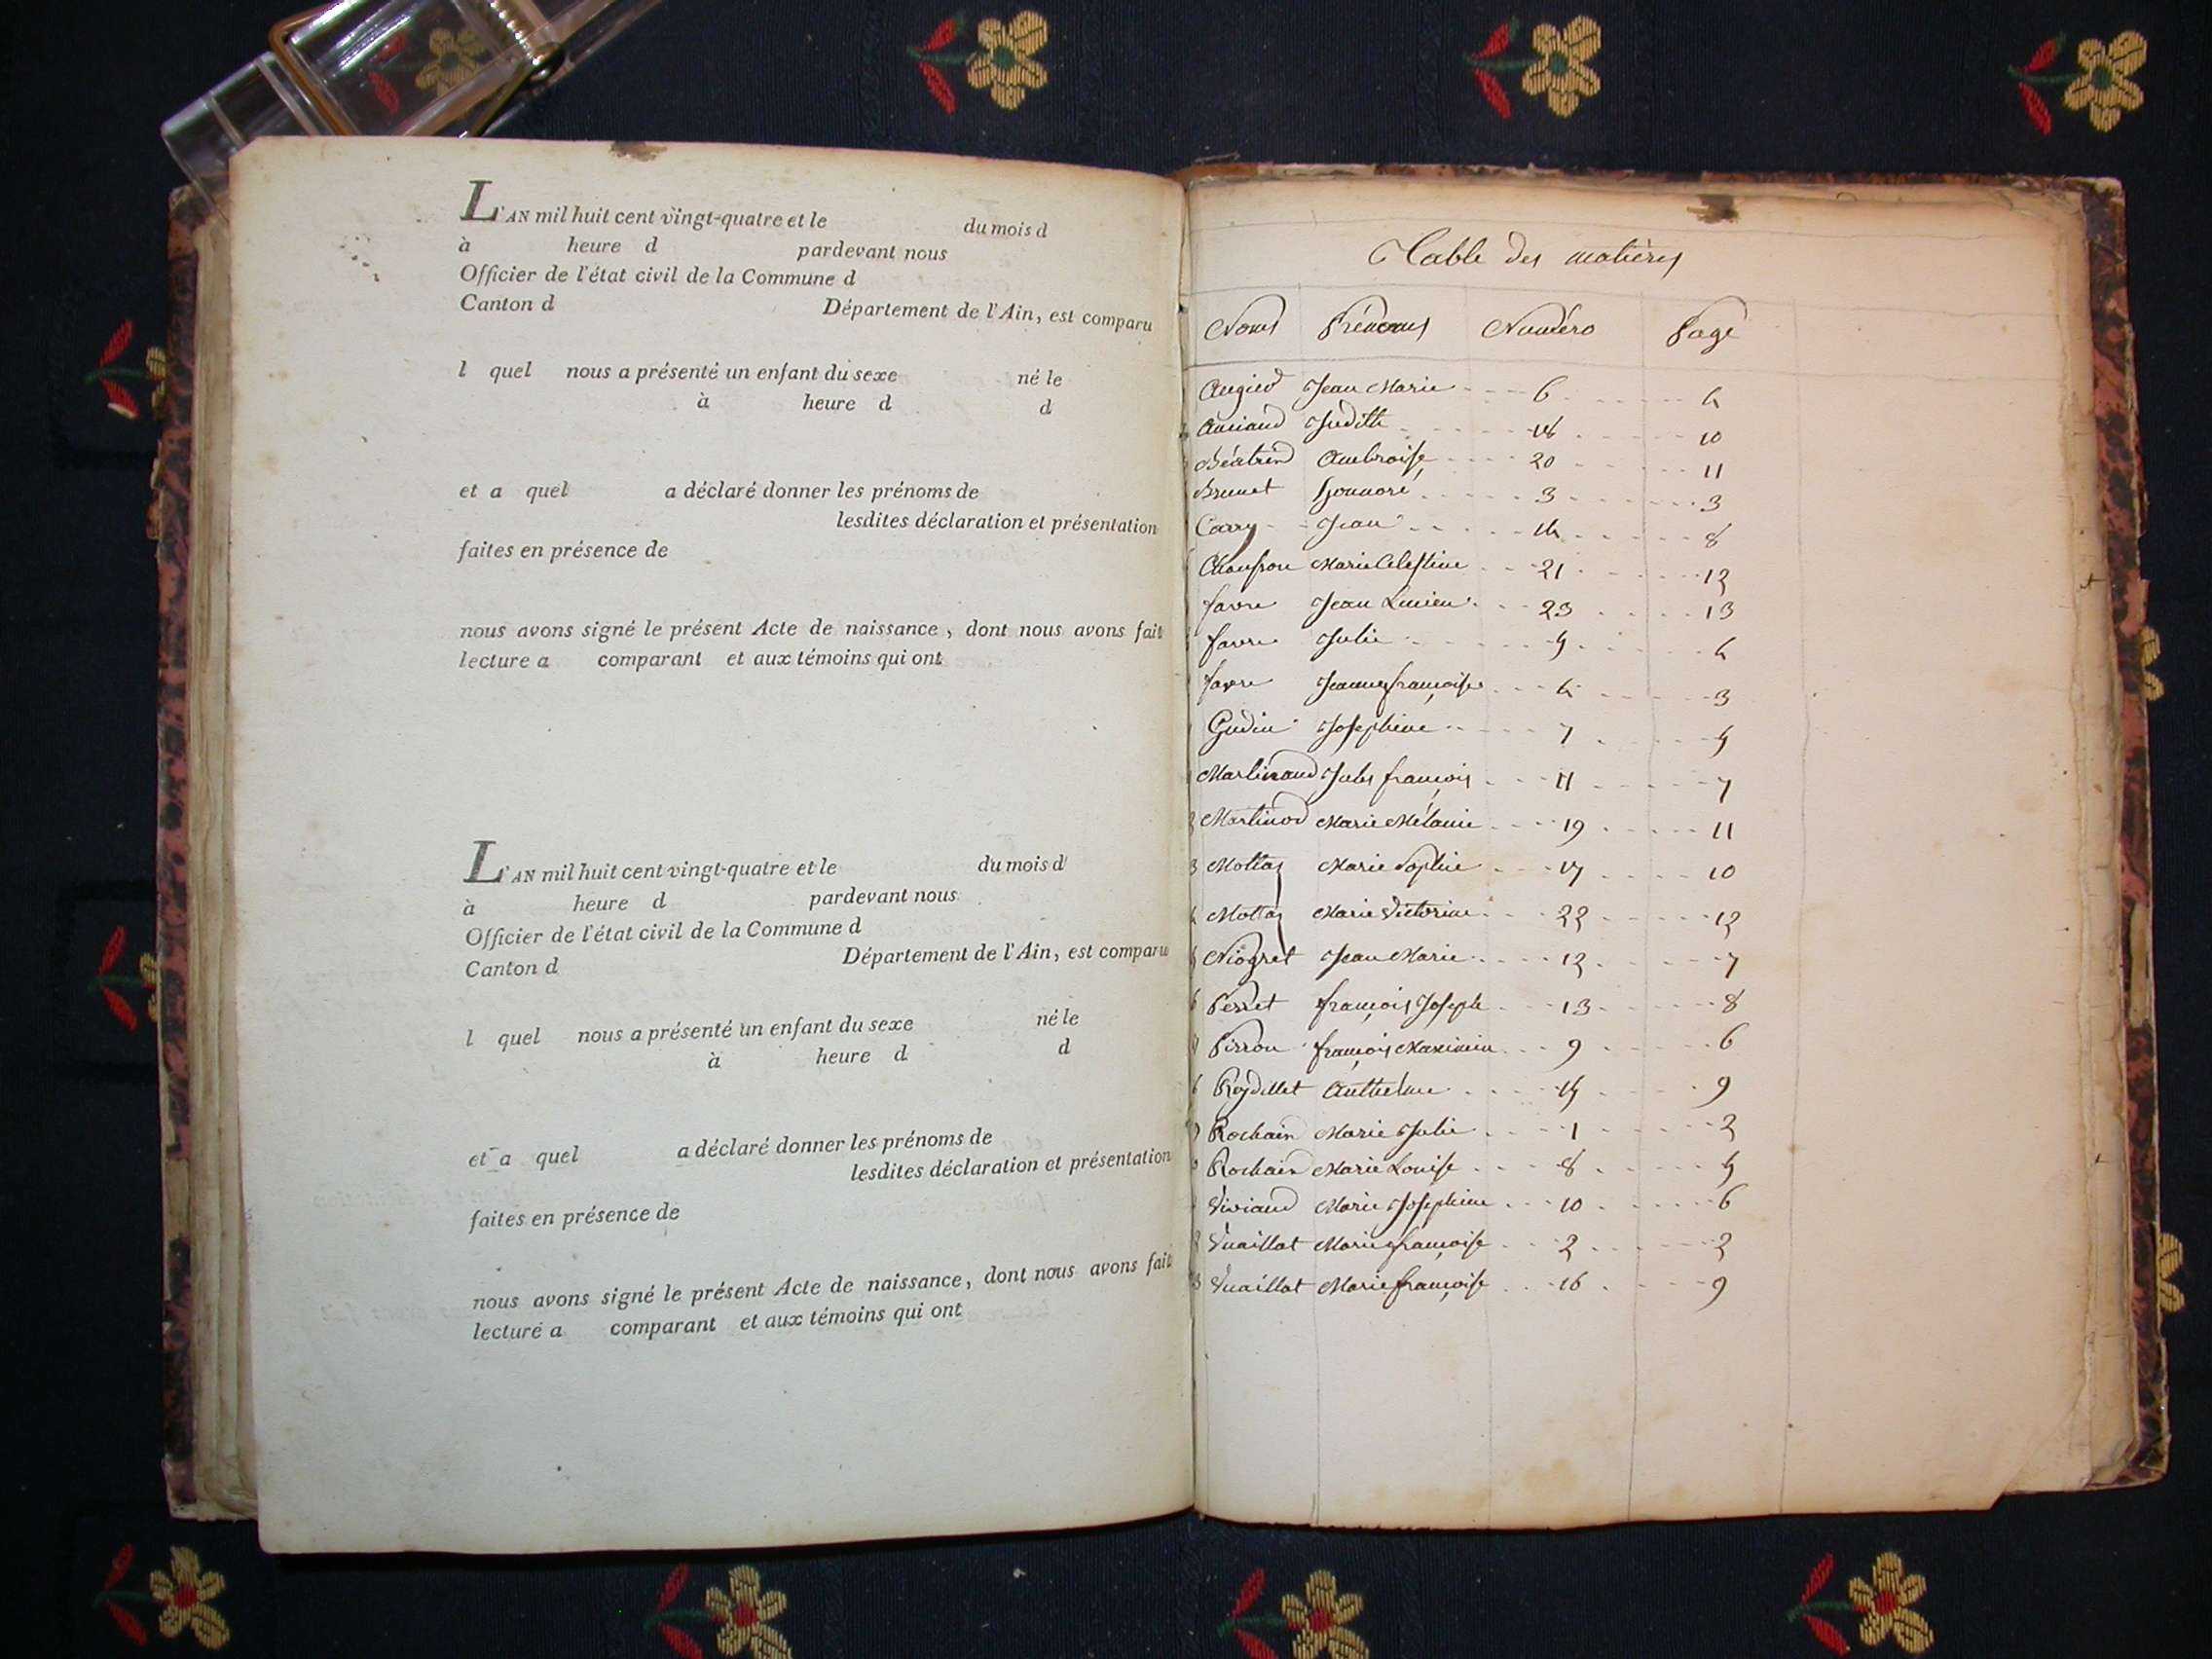 L'AN mil huit cent vingt-quatre et le du mois d
à heure d pardevant nous
Officier de l'état civil de la Commune d
Canton d Département de l'Ain, est comparu
l quel nous a présenté un enfant du sexe né le
à heure d d
et a quel a déclaré donner les prénoms de
lesdites déclaration et présentation
faites en présence de
nous avons signé le présent Acte de naissance, dont nous avons fait
lecture a comparant et aux témoins qui ont
L'AN mil huit cent vingt-quatre et le du mois d
à heure d pardevant nous
Officier de l'état civil de la Commune d
Canton d Département de l'Ain, est comparu
l quel nous a présenté un enfant du sexe né le
à heure d d
et a quel a déclaré donner les prénoms de
lesdites déclaration et présentation
faites en présence de
nous avons signé le présent Acte de naissance, dont nous avons fait
lecture a comparant et aux témoins qui ont
Table des matières
Noms Prénoms Numéro Page
Jean Marie 6 4
Judith 18 10
Ambroise 20 11
Brunet honnoré 3 3
Carry Jean 14 8
Marie Celestine 21 12
favre Jean Lucien 23 13
favre Julie 5 4
favre Jeanne françoise 4 3
Gudin Josephine 7 5
Martinand Jules françois 11 7
Martinod Marie Mélanie 19 11
Mottaz Marie Sophie 17 10
Mottaz Marie Victorine 22 12
Niogret Jean Marie 12 7
Perret françois Joseph 13 8
Pirron françois Maximin 9 6
Reydellet Anthelme 15 9
Rochaix Marie Julie 1 2
Rochaix Marie Louise 8 5
Viviand Marie Josephine 10 6
Vuaillat Marie françoise 2 2
Vuaillat Marie françoise 16 9